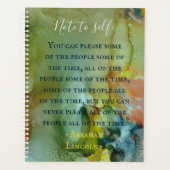 Note to self
You can please some
of the people some
of the time, all of
the people some of
the time, some of
the people all of
the time, but you can
never please all of
the people all of the
time.
-
Abraham
Lincoln